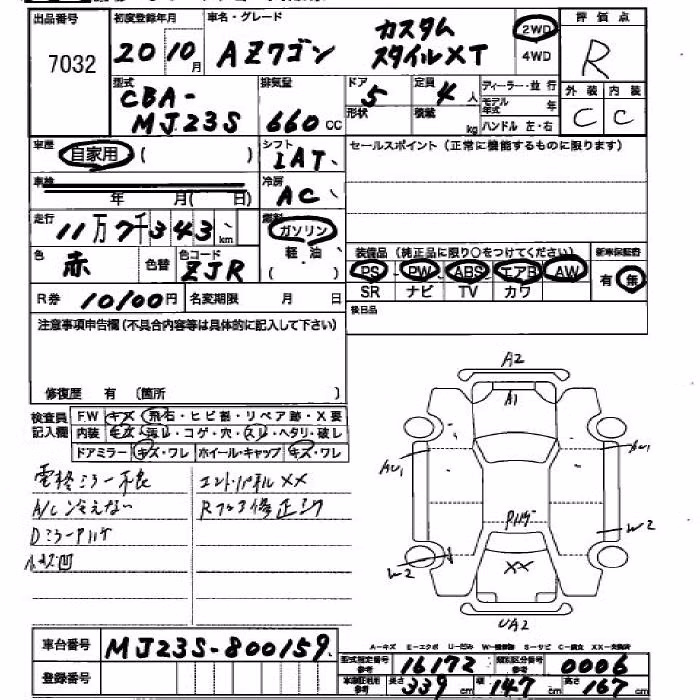 出品番号 初度登録年月 車名・グレード 評価点
7032 20年10月 AZワゴン カスタムスタイルXT 2WD 4WD R
型式 排気量 ドア 定員 ディーラー・並行 外装 内装
CBA-MJ23S 660cc 5 4人 モデル年式 年 C C
形状 積載 kg ハンドル 左・右
車歴 自家用 ( ) シフト IAT セールスポイント(正常に機能するものに限ります)
車検 年 月( 日) 冷房 AC
走行 11万7千343km 燃料 ガソリン 軽油 ( )
装備品(純正品に限り○をつけてください) 新車保証書
色 赤 色替 色コード ZJR
PS PW ABS エアB AW 有 無
SR ナビ TV カワ
R券 10100円 名変期限 月 日 後日品
注意事項申告欄(不具合内容等は具体的に記入して下さい)
修復歴 有 (箇所 )
検査員記入欄 FW キズ・飛石・ヒビ割・リペア跡・X要
内装 キズ・汚レ・コゲ・穴・スレ・ヘタリ・破レ
ドアミラー キズ・ワレ ホイール・キャップ キズ・ワレ
電格ミラー不良 エンドパネルXX
A/C冷えない
Dミラー
A2
A1
AU1 AU1
W2 W2
XX
UA2
車台番号 MJ23S-800159
登録番号
A-キズ E-エクボ U-凹み S-サビ
型式指定番号 参考 16172 類別区分番号 参考 0006
長さ 339cm 幅 147cm 高さ 167cm